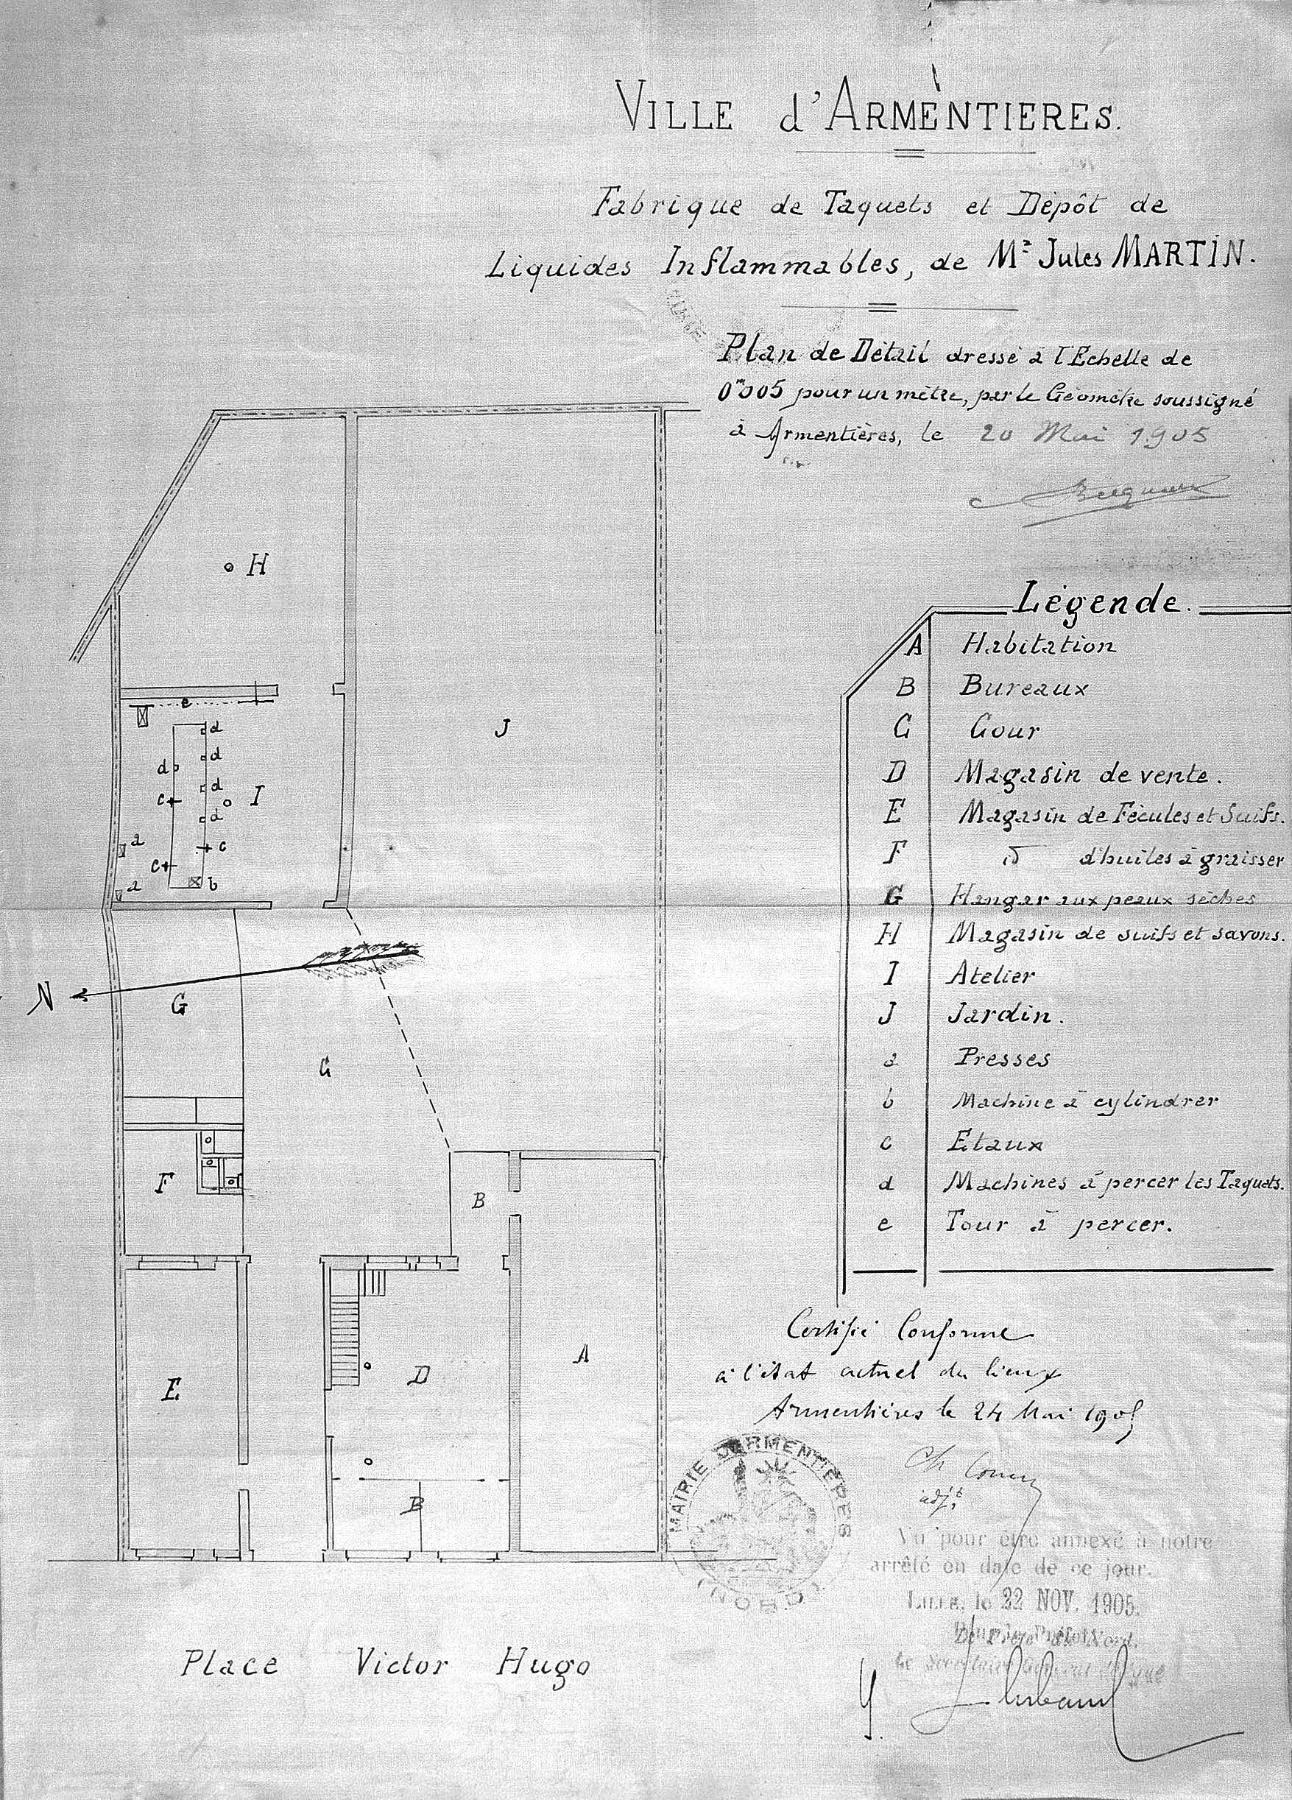 VILLE d'ARMÈNTIERES.
Fabrique de Taquets et Dépôt de
Liquides Inflammables, de Mr Jules MARTIN.
Plan de Détail dressé à l'Echelle de
0m005 pour un mètre, par le Géomètre soussigné
à Armentières, le 20 Mai 1905
Légende.
A Habitation
B Bureaux
C Cour
D Magasin de vente.
E Magasin de Fécules et Suifs.
F d° d'huiles à graisser
G Hangar aux peaux sèches
H Magasin de suifs et savons.
I Atelier
J Jardin.
a Presses
b Machine à cylindrer
c Etaux
d Machines à percer les Taquets.
e Tour à percer.
H
J
e
d
d
d
d
d
c
I
c
c
a
a
b
N
G
C
F
B
E
D
A
B
Certifié Conforme
à l'état actuel du lieux
Armentières le 24 Mai 1905
adjt
MAIRIE D'ARMENTIÈRES
(NORD)
Vu pour être annexé à notre
arrêté en date de ce jour.
LILLE, le 22 NOV. 1905.
Place Victor Hugo